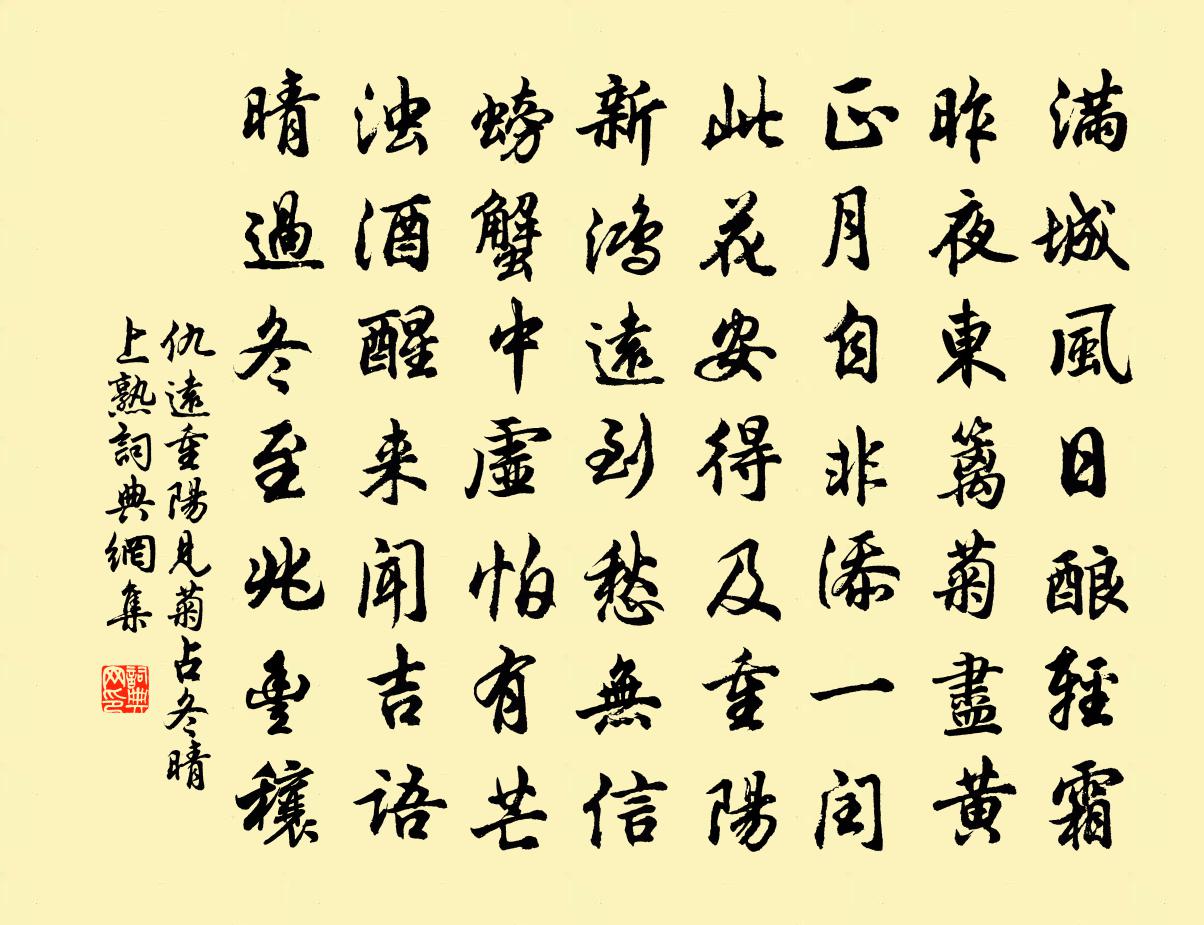 满城風日酿輕霜
昨夜東籬菊盡黄
正月自非添一闰
此花安得及重陽
新鸿遠到愁無信
螃蟹中虚怕有芒
浊酒醒来闻吉语
晴過冬至兆豊穰
仇遠重陽見菊占冬晴
上熟詞典網集
詞典
网印